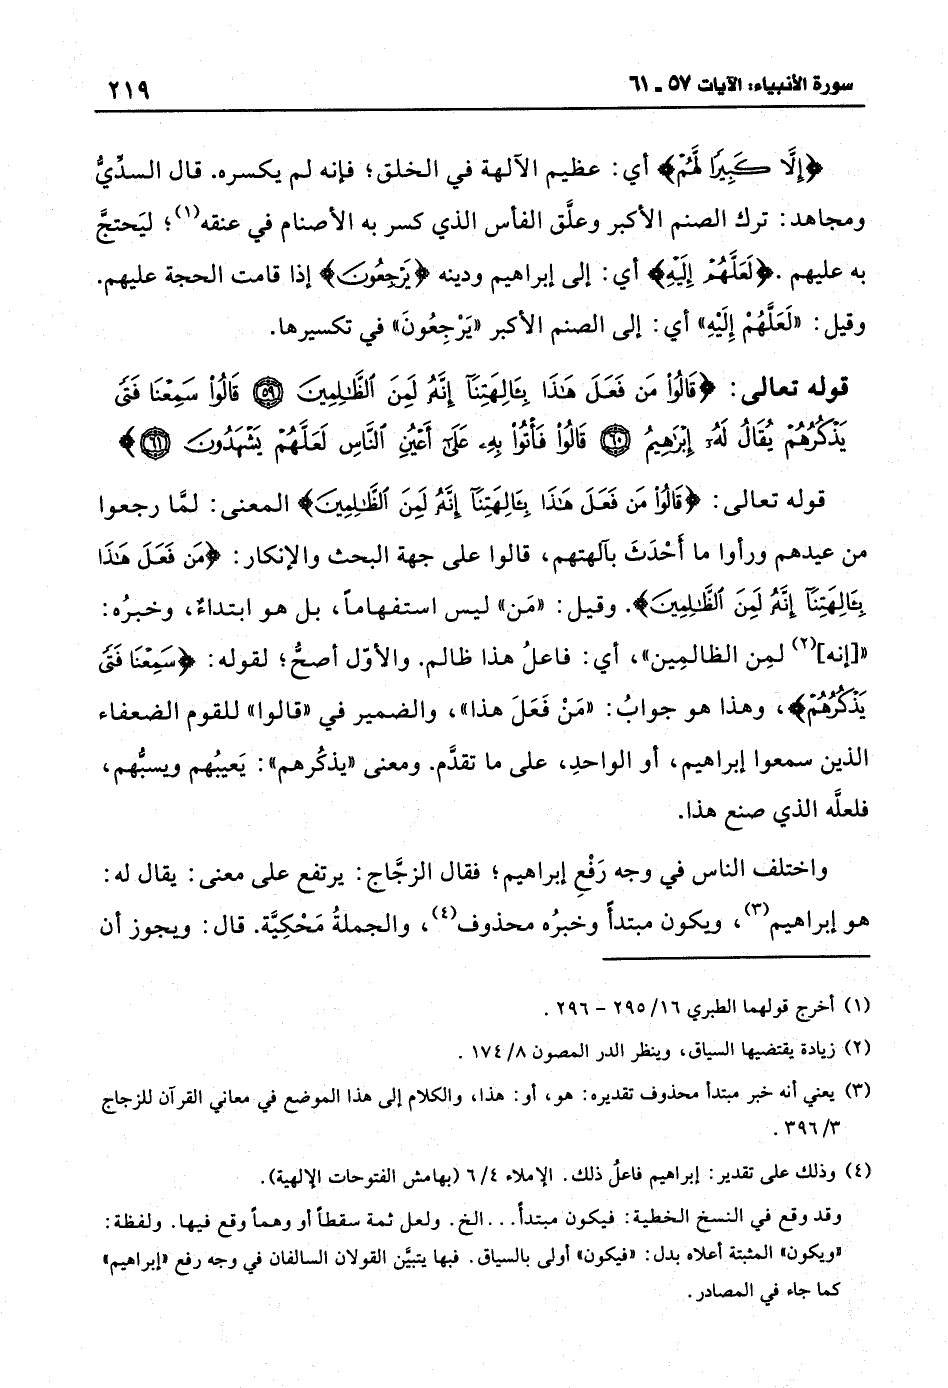 سورة الأنبياء: الآيات ٥٧ ـ ٦١
٢١٩
﴿إِلَّا كَبِيرًا لَّهُمْ﴾ أي: عظيم الآلهة في الخلق؛ فإنه لم يكسره. قال السدِّيُّ
ومجاهد: ترك الصنم الأكبر وعلَّق الفأس الذي كسر به الأصنام في عنقه(١)؛ ليَحتجَّ
به عليهم. ﴿لَعَلَّهُمْ إِلَيْهِ﴾ أي: إلى إبراهيم ودينه ﴿يَرْجِعُونَ﴾ إذا قامت الحجة عليهم.
وقيل: «لَعَلَّهُمْ إِلَيْهِ» أي: إلى الصنم الأكبر «يَرْجِعُونَ» في تكسيرها.
قوله تعالى: ﴿قَالُواْ مَن فَعَلَ هَٰذَا بِـَٔالِهَتِنَآ إِنَّهُۥ لَمِنَ ٱلظَّٰلِمِينَ ۝٥٩ قَالُواْ سَمِعْنَا فَتًى
يَذْكُرُهُمْ يُقَالُ لَهُۥٓ إِبْرَٰهِيمُ ۝٦٠ قَالُواْ فَأْتُواْ بِهِۦ عَلَىٰٓ أَعْيُنِ ٱلنَّاسِ لَعَلَّهُمْ يَشْهَدُونَ ۝٦١﴾
قوله تعالى: ﴿قَالُواْ مَن فَعَلَ هَٰذَا بِـَٔالِهَتِنَآ إِنَّهُۥ لَمِنَ ٱلظَّٰلِمِينَ﴾ المعنى: لمَّا رجعوا
من عيدهم ورأوا ما أَحْدَثَ بآلهتهم، قالوا على جهة البحث والإنكار: ﴿مَن فَعَلَ هَٰذَا
بِـَٔالِهَتِنَآ إِنَّهُۥ لَمِنَ ٱلظَّٰلِمِينَ﴾. وقيل: «مَن» ليس استفهاماً، بل هو ابتداءٌ، وخبرُه:
«[إنه](٢) لمِن الظالمِين»، أي: فاعلُ هذا ظالم. والأوّل أصحُّ؛ لقوله: ﴿سَمِعْنَا فَتًى
يَذْكُرُهُمْ﴾، وهذا هو جوابُ: «مَنْ فَعَلَ هذا»، والضمير في «قالوا» للقوم الضعفاء
الذين سمعوا إبراهيم، أو الواحدِ، على ما تقدَّم. ومعنى «يذكُرهم»: يَعيبُهم ويسبُّهم،
فلعلَّه الذي صنع هذا.
واختلف الناس في وجه رَفْعِ إبراهيم؛ فقال الزجَّاج: يرتفع على معنى: يقال له:
هو إبراهيم(٣)، ويكون مبتدأً وخبرُه محذوف(٤)، والجملةُ مَحْكِيَّة. قال: ويجوز أن
(١) أخرج قولهما الطبري ١٦/ ٢٩٥ – ٢٩٦ .
(٢) زيادة يقتضيها السياق، وينظر الدر المصون ٨/ ١٧٤ .
(٣) يعني أنه خبر مبتدأ محذوف تقديره: هو، أو: هذا، والكلام إلى هذا الموضع في معاني القرآن للزجاج
٣/ ٣٩٦ .
(٤) وذلك على تقدير: إبراهيم فاعلُ ذلك. الإملاء ٤/ ٦ (بهامش الفتوحات الإلهية).
وقد وقع في النسخ الخطية: فيكون مبتدأ... الخ. ولعل ثمة سقطاً أو وهماً وقع فيها. ولفظة:
«ويكون» المثبتة أعلاه بدل: «فيكون» أولى بالسياق. فبها يتبيَّن القولان السالفان في وجه رفع «إبراهيم»
كما جاء في المصادر.